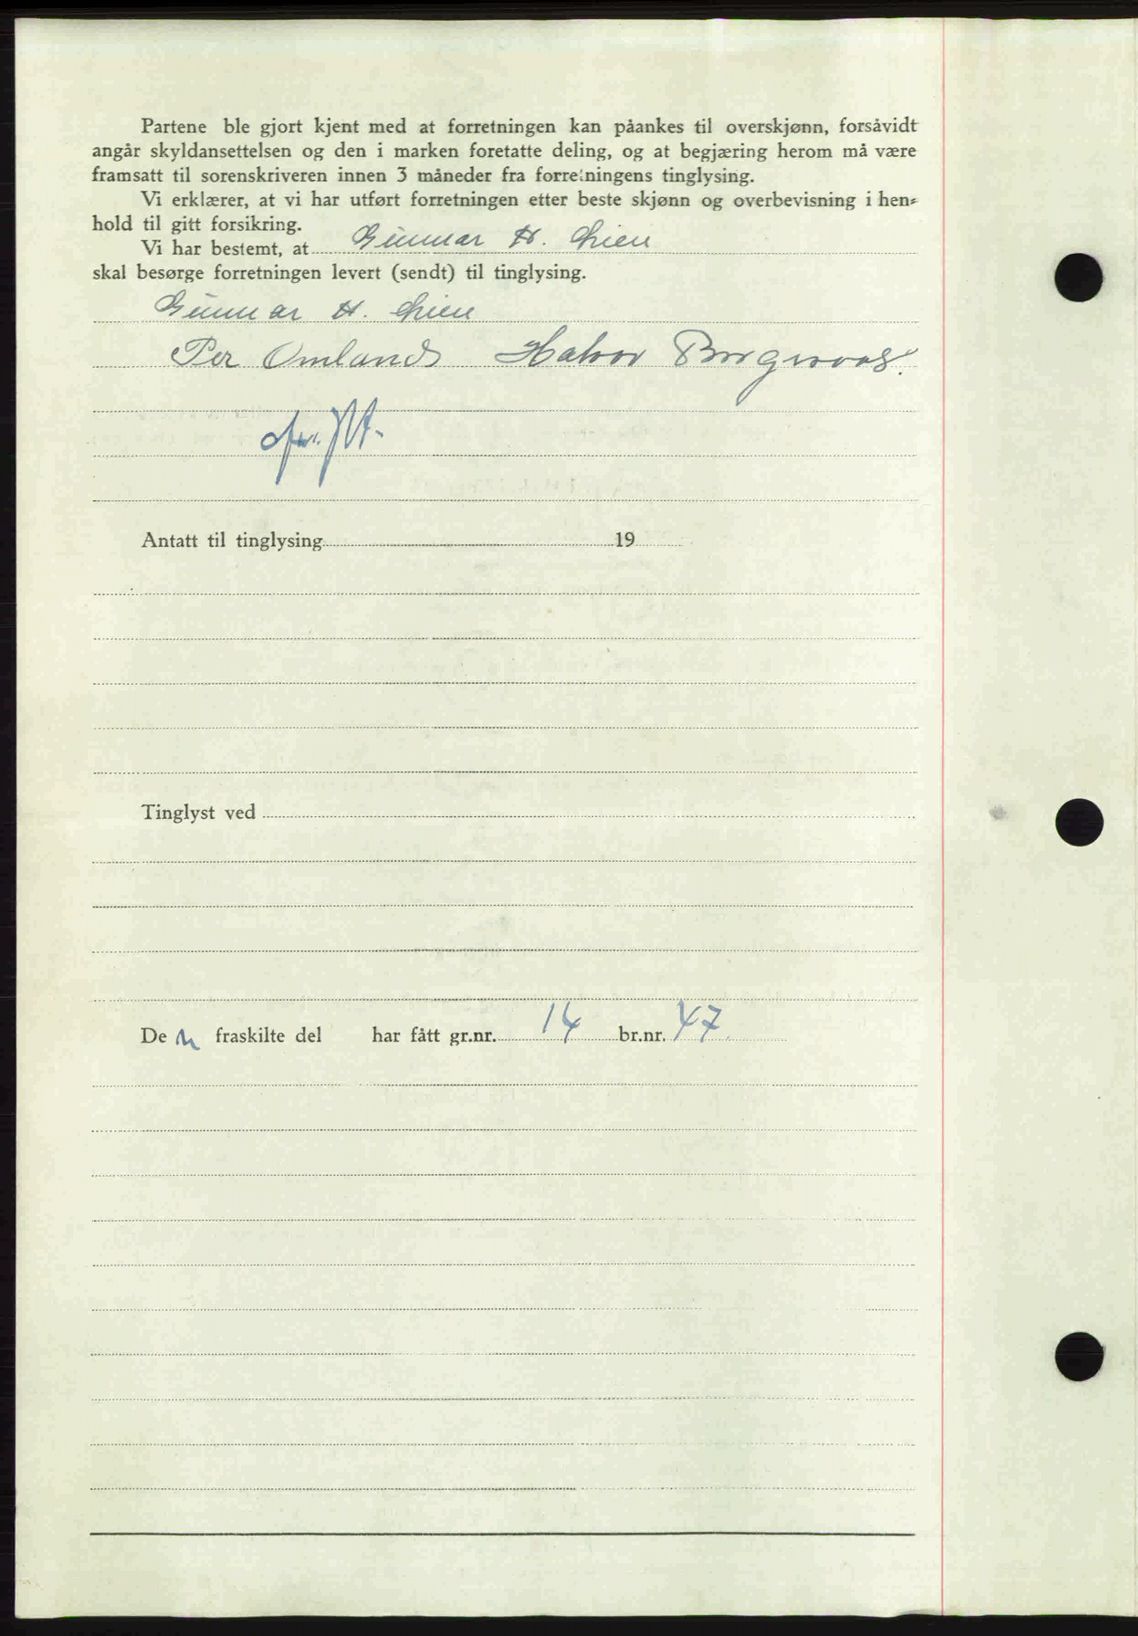 Partene ble gjort kjent med at forretningen kan påankes til overskjønn, forsåvidt
angår skyldansettelsen og den i marken foretatte deling, og at begjæring herom må være
framsatt til sorenskriveren innen 3 måneder fra forretningens tinglysing.
Vi erklærer, at vi har utført forretningen etter beste skjønn og overbevisning i hen-
hold til gitt forsikring.
Vi har bestemt, at Gunnar H. Lien
skal besørge forretningen levert (sendt) til tinglysing.
Gunnar H. Lien
Per Omland Halvor
Antatt til tinglysing 19
Tinglyst ved
De n fraskilte del har fått gr.nr. 14 br.nr. 47